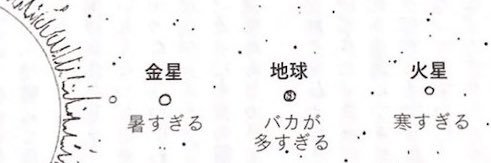 金星
暑すぎる
地球
バカが
多すぎる
火星
寒すぎる